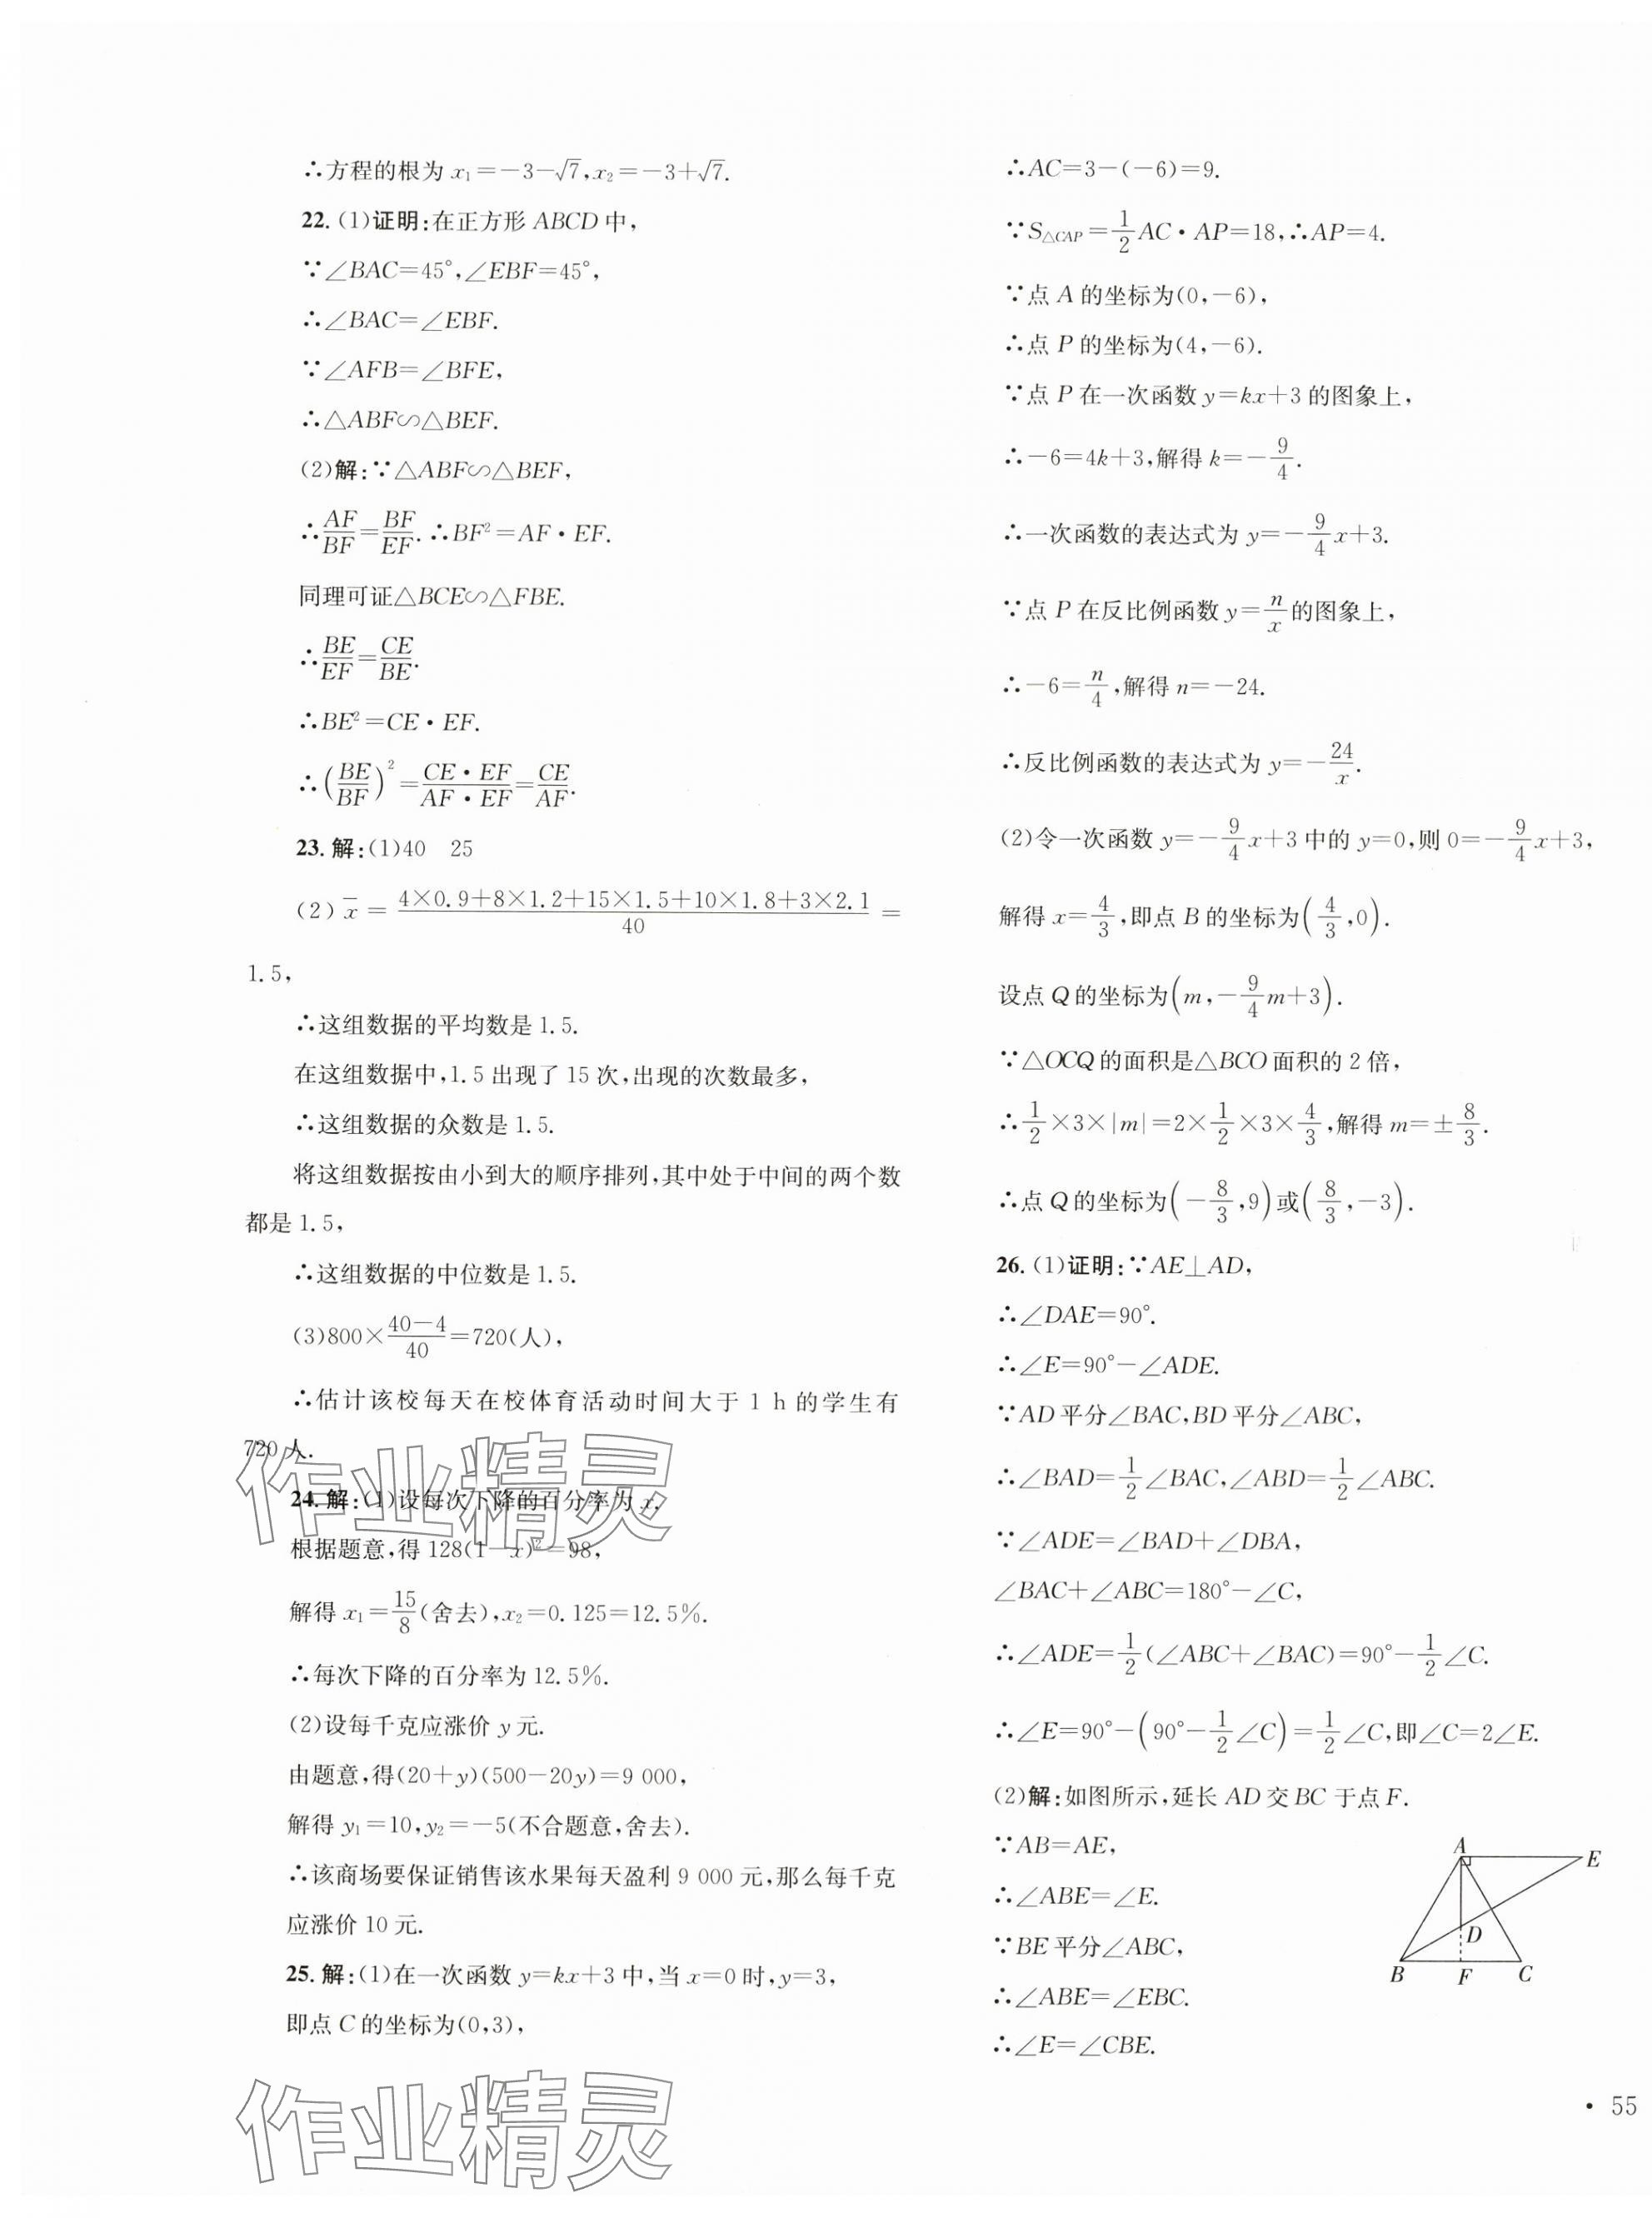 ∴方程的根为 x₁=−3−√7,x₂=−3+√7.
22.(1)证明:在正方形 ABCD 中,
∵∠BAC=45°,∠EBF=45°,
∴∠BAC=∠EBF.
∵∠AFB=∠BFE,
∴△ABF∽△BEF.
(2)解:∵△ABF∽△BEF,
∴AF/BF=BF/EF.∴BF²=AF·EF.
同理可证△BCE∽△FBE.
∴BE/EF=CE/BE.
∴BE²=CE·EF.
∴(BE/BF)²=(CE·EF)/(AF·EF)=CE/AF.
23.解:(1)40 25
(2) x̄ = (4×0.9+8×1.2+15×1.5+10×1.8+3×2.1)/40 =
1.5,
∴这组数据的平均数是 1.5.
在这组数据中,1.5 出现了 15 次,出现的次数最多,
∴这组数据的众数是 1.5.
将这组数据按由小到大的顺序排列,其中处于中间的两个数
都是 1.5,
∴这组数据的中位数是 1.5.
(3)800×(40−4)/40=720(人),
∴估计该校每天在校体育活动时间大于 1 h 的学生有
720 人.
24.解:(1)设每次下降的百分率为 x,
根据题意,得 128(1−x)²=98,
解得 x₁=15/8(舍去),x₂=0.125=12.5%.
∴每次下降的百分率为 12.5%.
(2)设每千克应涨价 y 元.
由题意,得(20+y)(500−20y)=9 000,
解得 y₁=10,y₂=−5(不合题意,舍去).
∴该商场要保证销售该水果每天盈利 9 000 元,那么每千克
应涨价 10 元.
25.解:(1)在一次函数 y=kx+3 中,当 x=0 时,y=3,
即点 C 的坐标为(0,3),
∴AC=3−(−6)=9.
∵S△CAP=1/2 AC·AP=18,∴AP=4.
∵点 A 的坐标为(0,−6),
∴点 P 的坐标为(4,−6).
∵点 P 在一次函数 y=kx+3 的图象上,
∴−6=4k+3,解得 k=−9/4.
∴一次函数的表达式为 y=−9/4 x+3.
∵点 P 在反比例函数 y=n/x 的图象上,
∴−6=n/4,解得 n=−24.
∴反比例函数的表达式为 y=−24/x.
(2)令一次函数 y=−9/4 x+3 中的 y=0,则 0=−9/4 x+3,
解得 x=4/3,即点 B 的坐标为(4/3,0).
设点 Q 的坐标为(m,−9/4 m+3).
∵△OCQ 的面积是△BCO 面积的 2 倍,
∴1/2×3×|m|=2×1/2×3×4/3,解得 m=±8/3.
∴点 Q 的坐标为(−8/3,9)或(8/3,−3).
26.(1)证明:∵AE⊥AD,
∴∠DAE=90°.
∴∠E=90°−∠ADE.
∵AD 平分∠BAC,BD 平分∠ABC,
∴∠BAD=1/2∠BAC,∠ABD=1/2∠ABC.
∵∠ADE=∠BAD+∠DBA,
∠BAC+∠ABC=180°−∠C,
∴∠ADE=1/2(∠ABC+∠BAC)=90°−1/2∠C.
∴∠E=90°−(90°−1/2∠C)=1/2∠C,即∠C=2∠E.
(2)解:如图所示,延长 AD 交 BC 于点 F.
∵AB=AE,
∴∠ABE=∠E.
∵BE 平分∠ABC,
∴∠ABE=∠EBC.
∴∠E=∠CBE.
A
E
D
B F C
· 55
作业精灵
作业精灵